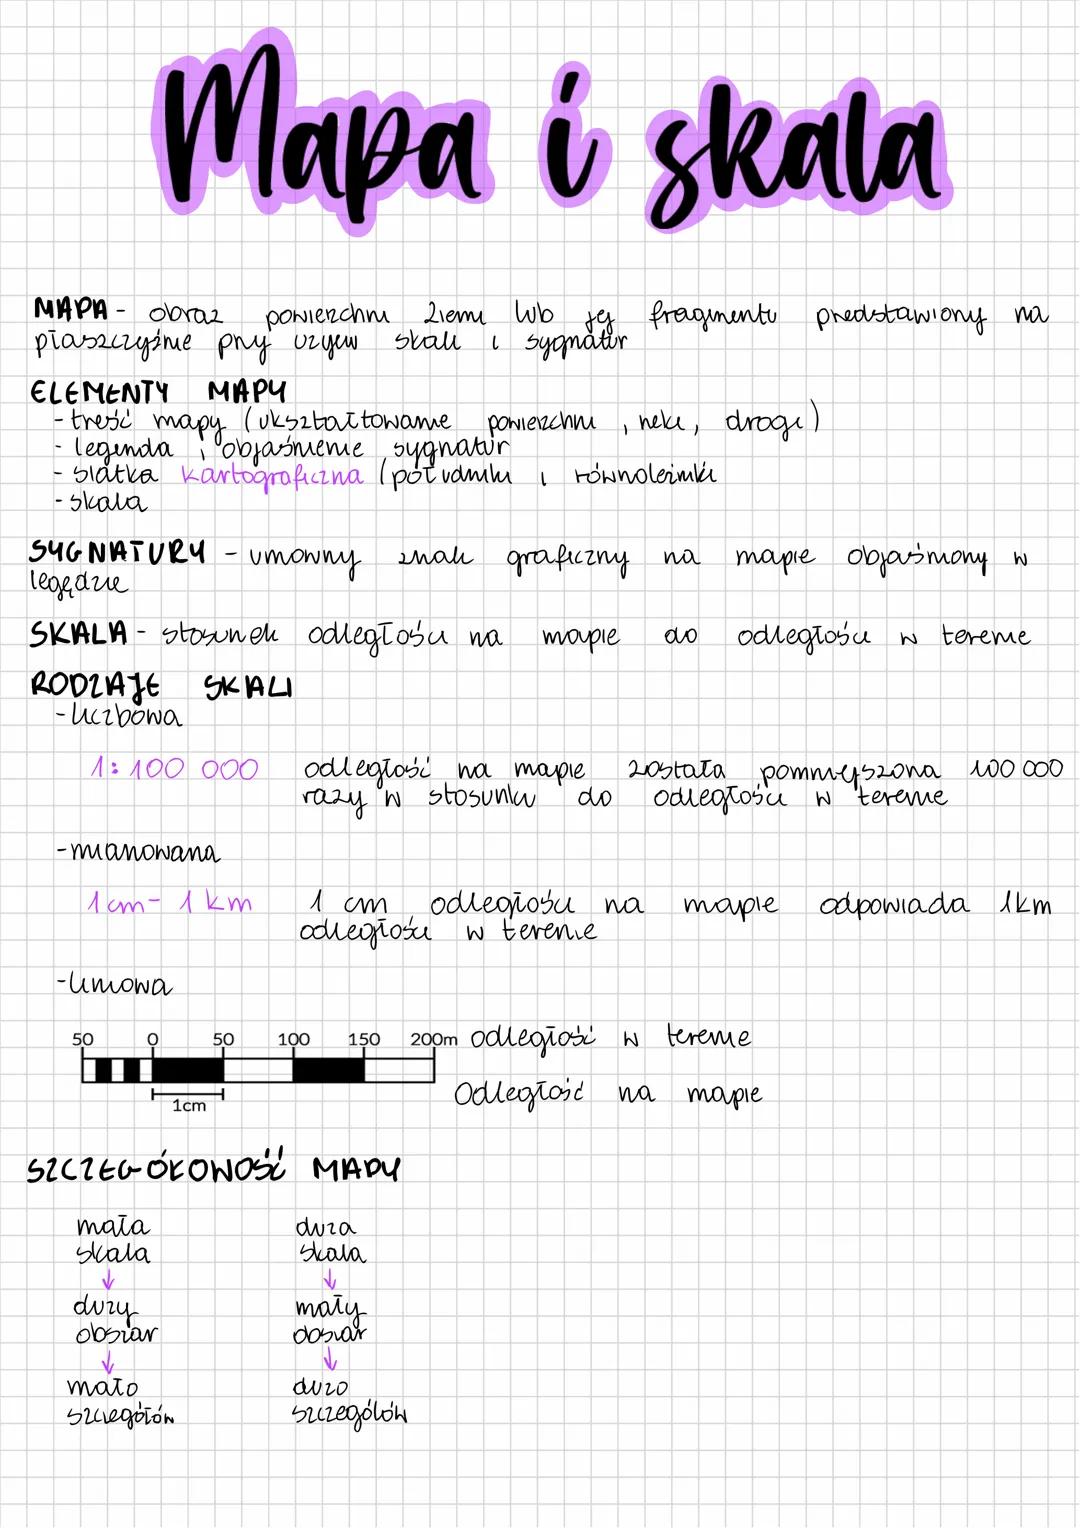 Mapa i skala
MAPA - obraz powierzchni Ziemi lub jej fragmentu przedstawiony na
płaszczyźnie przy użyciu skali i sygnatur
ELEMENTY MAPY
- treść mapy (ukształtowanie powierzchni, rzeki, drogi)
- legenda i objaśnienie sygnatur
- siatka kartograficzna (południki i równoleżniki
- skala
SYGNATURY - umowny znak graficzny na mapie objaśniony w
legędzie
SKALA - stosunek odległości na mapie do odległości w terenie
RODZAJE SKALI
- liczbowa
1: 100 000 odległość na mapie została pomniejszona 100 000
razy w stosunku do odległości w terenie
- mianowana
1 cm - 1 km 1 cm odległości na mapie odpowiada 1km
odległości w terenie
- liniowa
50 0 50 100 150 200m odległość w terenie
1cm Odległość na mapie
SZCZEGÓŁOWOŚĆ MAPY
mała duża
skala skala
↓ ↓
duży mały
obszar obszar
↓ ↓
mało dużo
szczegółów szczegółów